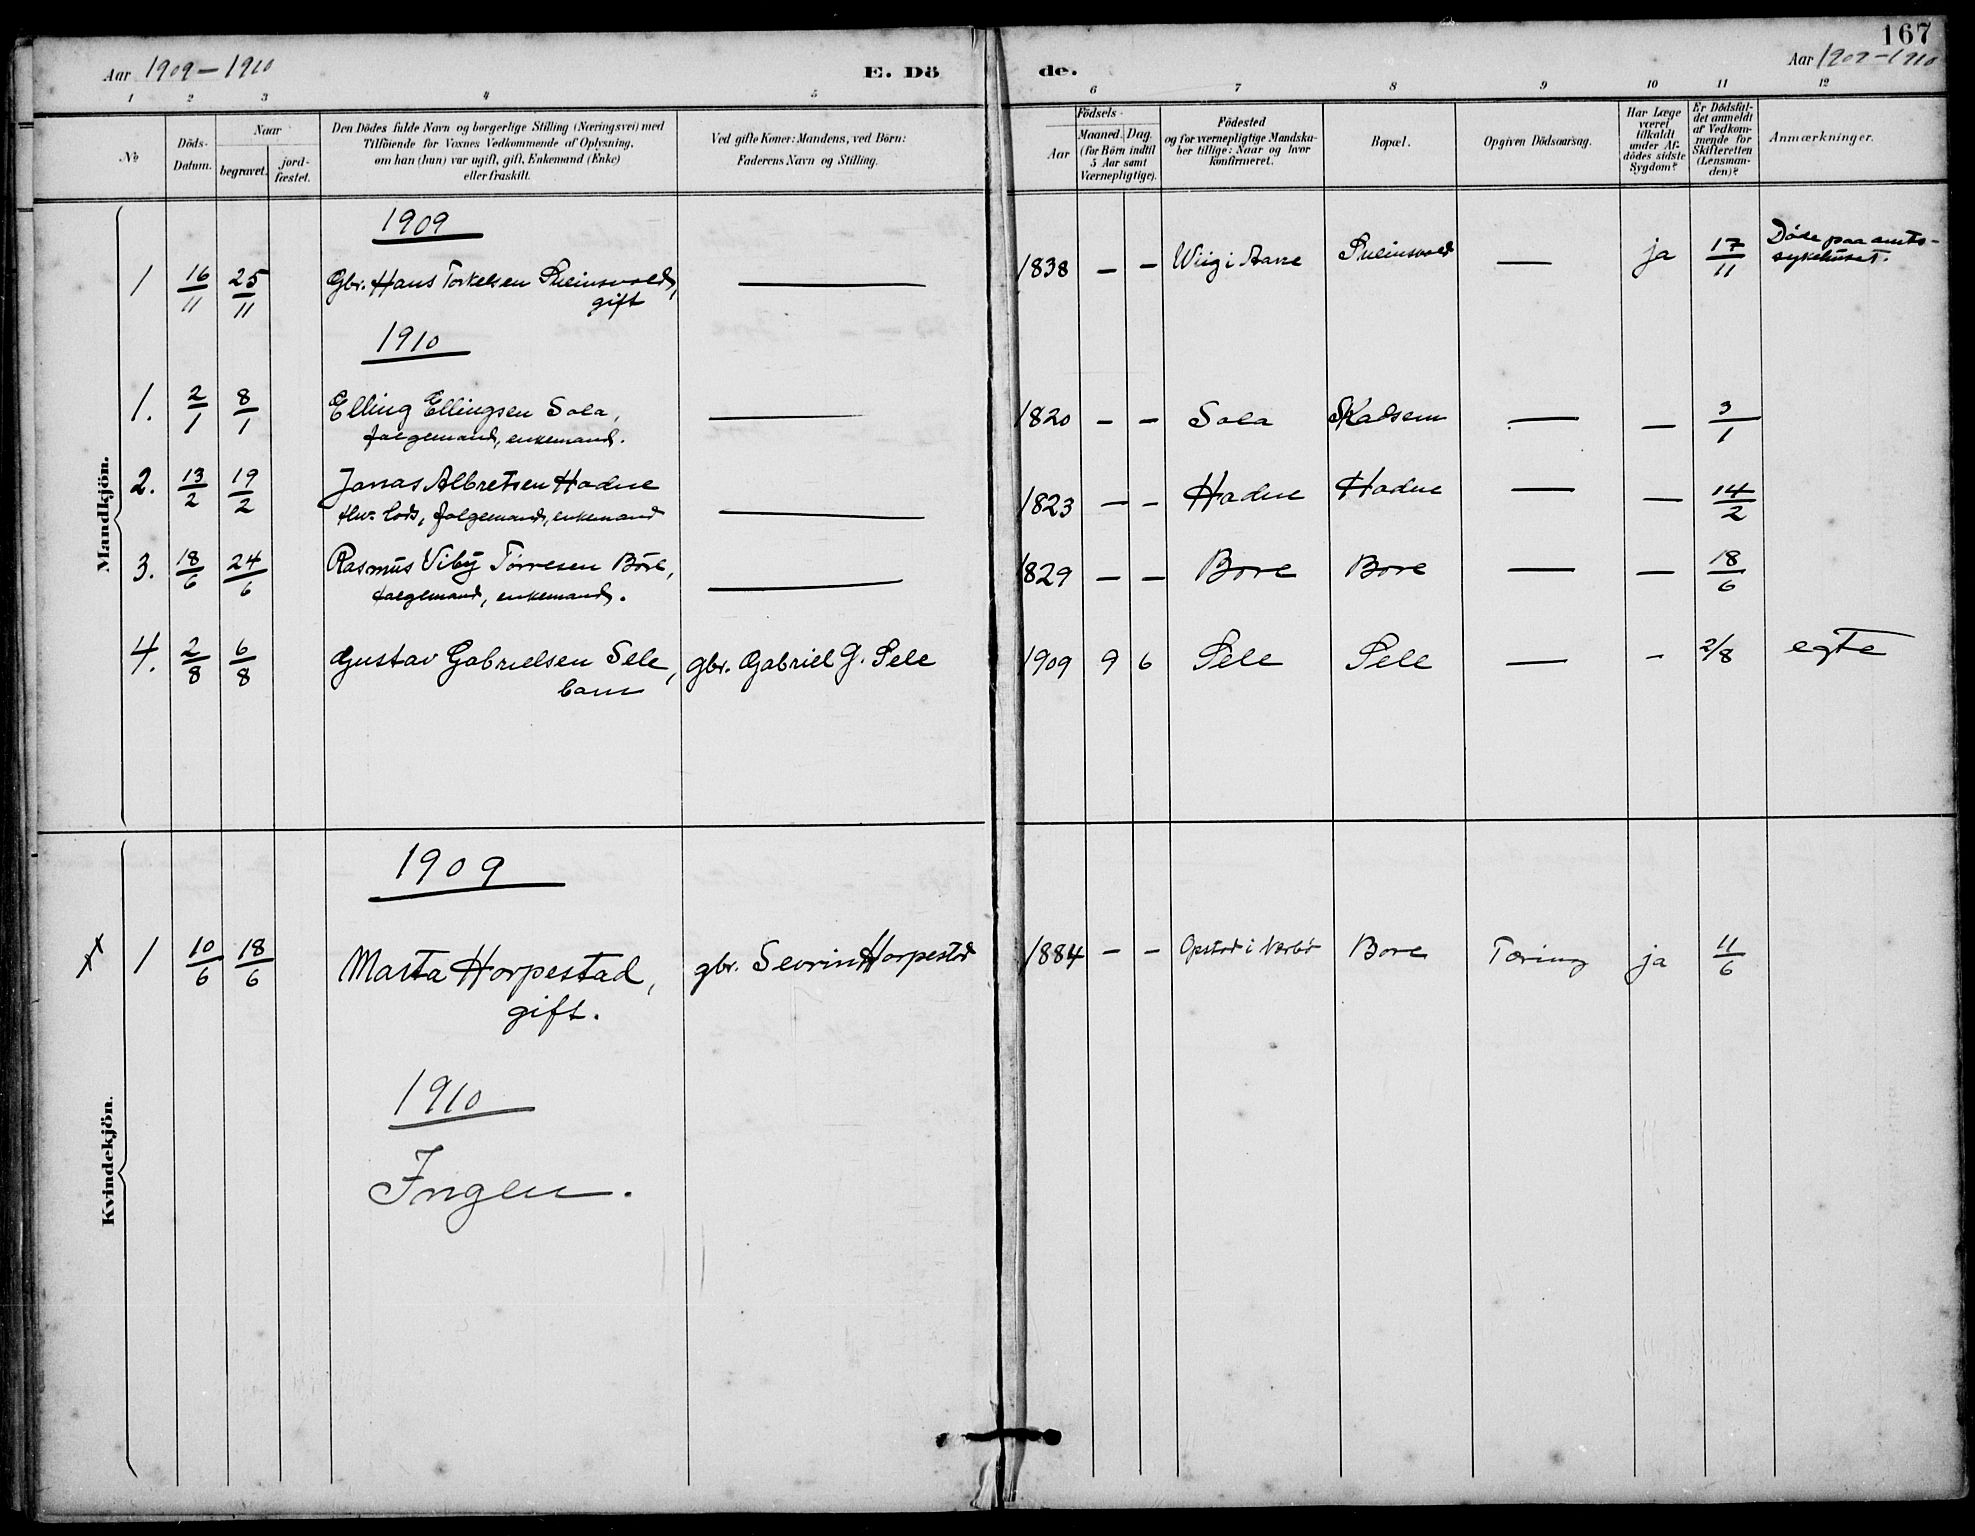 167
Aar 1909-1910 E. Dö de. Aar 1909-1910
1 2 3 4 5 6 7 8 9 10 11 12
No
Döds-
Datum.
Naar
begravet.
jord-
fæstet.
Den Dödes fulde Navn og borgerlige Stilling (Næringsvei) med
Tilföiende for Voxnes Vedkommende af Oplysning,
om han (hun) var ugift, gift, Enkemand (Enke)
eller fraskilt.
Ved gifte Koner: Mandens, ved Börn:
Faderens Navn og Stilling.
Födsels-
Aar
Maaned. Dag.
(for Börn indtil
5 Aar samt
Værnepligtige).
Födested
og for værnepligtige Mandska-
ber tillige: Naar og hvor
konfirmeret.
Bopæl.
Opgiven Dödsaarsag.
Har Læge
været
tilkaldt
under Af-
dödes sidste
Sygdom?
Er Dödsfal-
det anmeldt
af Vedkom-
mende for
Skifteretten
(Lensman-
den)?
Anmærkninger.
Mandkjön.
1909
1 16/11 25/11 Gbr. Hans Torkelsen — 1838 — — Wiig i — ja 17/11 Døde paa amts-
gift sykehuset.
1910
1. 2/1 8/1 Elling Ellingsen Sola, — 1820 — — Sola Skadsem — — 3/1
folgemand, enkemand.
2. 13/2 19/2 Jonas Albretsen Hodne — 1823 — — Hodne Hodne — — 14/2
lods, folgemand, enkemand
3. 18/6 24/6 Rasmus Viby Tørresen Bore, — 1829 — — Bore Bore — — 18/6
folgemand, enkemand.
4. 2/8 6/8 Gustav Gabrielsen Sele, gbr. Gabriel G. Sele 1909 9 6 Sele Sele — — 2/8 egte
barn
Kvindekjön.
1909
x 1 10/6 18/6 Marta Horpestad, gbr. Sevrin Horpestad 1884 — — Opstad i Nærbø Bore Tæring ja 11/6
gift.
1910
Ingen.